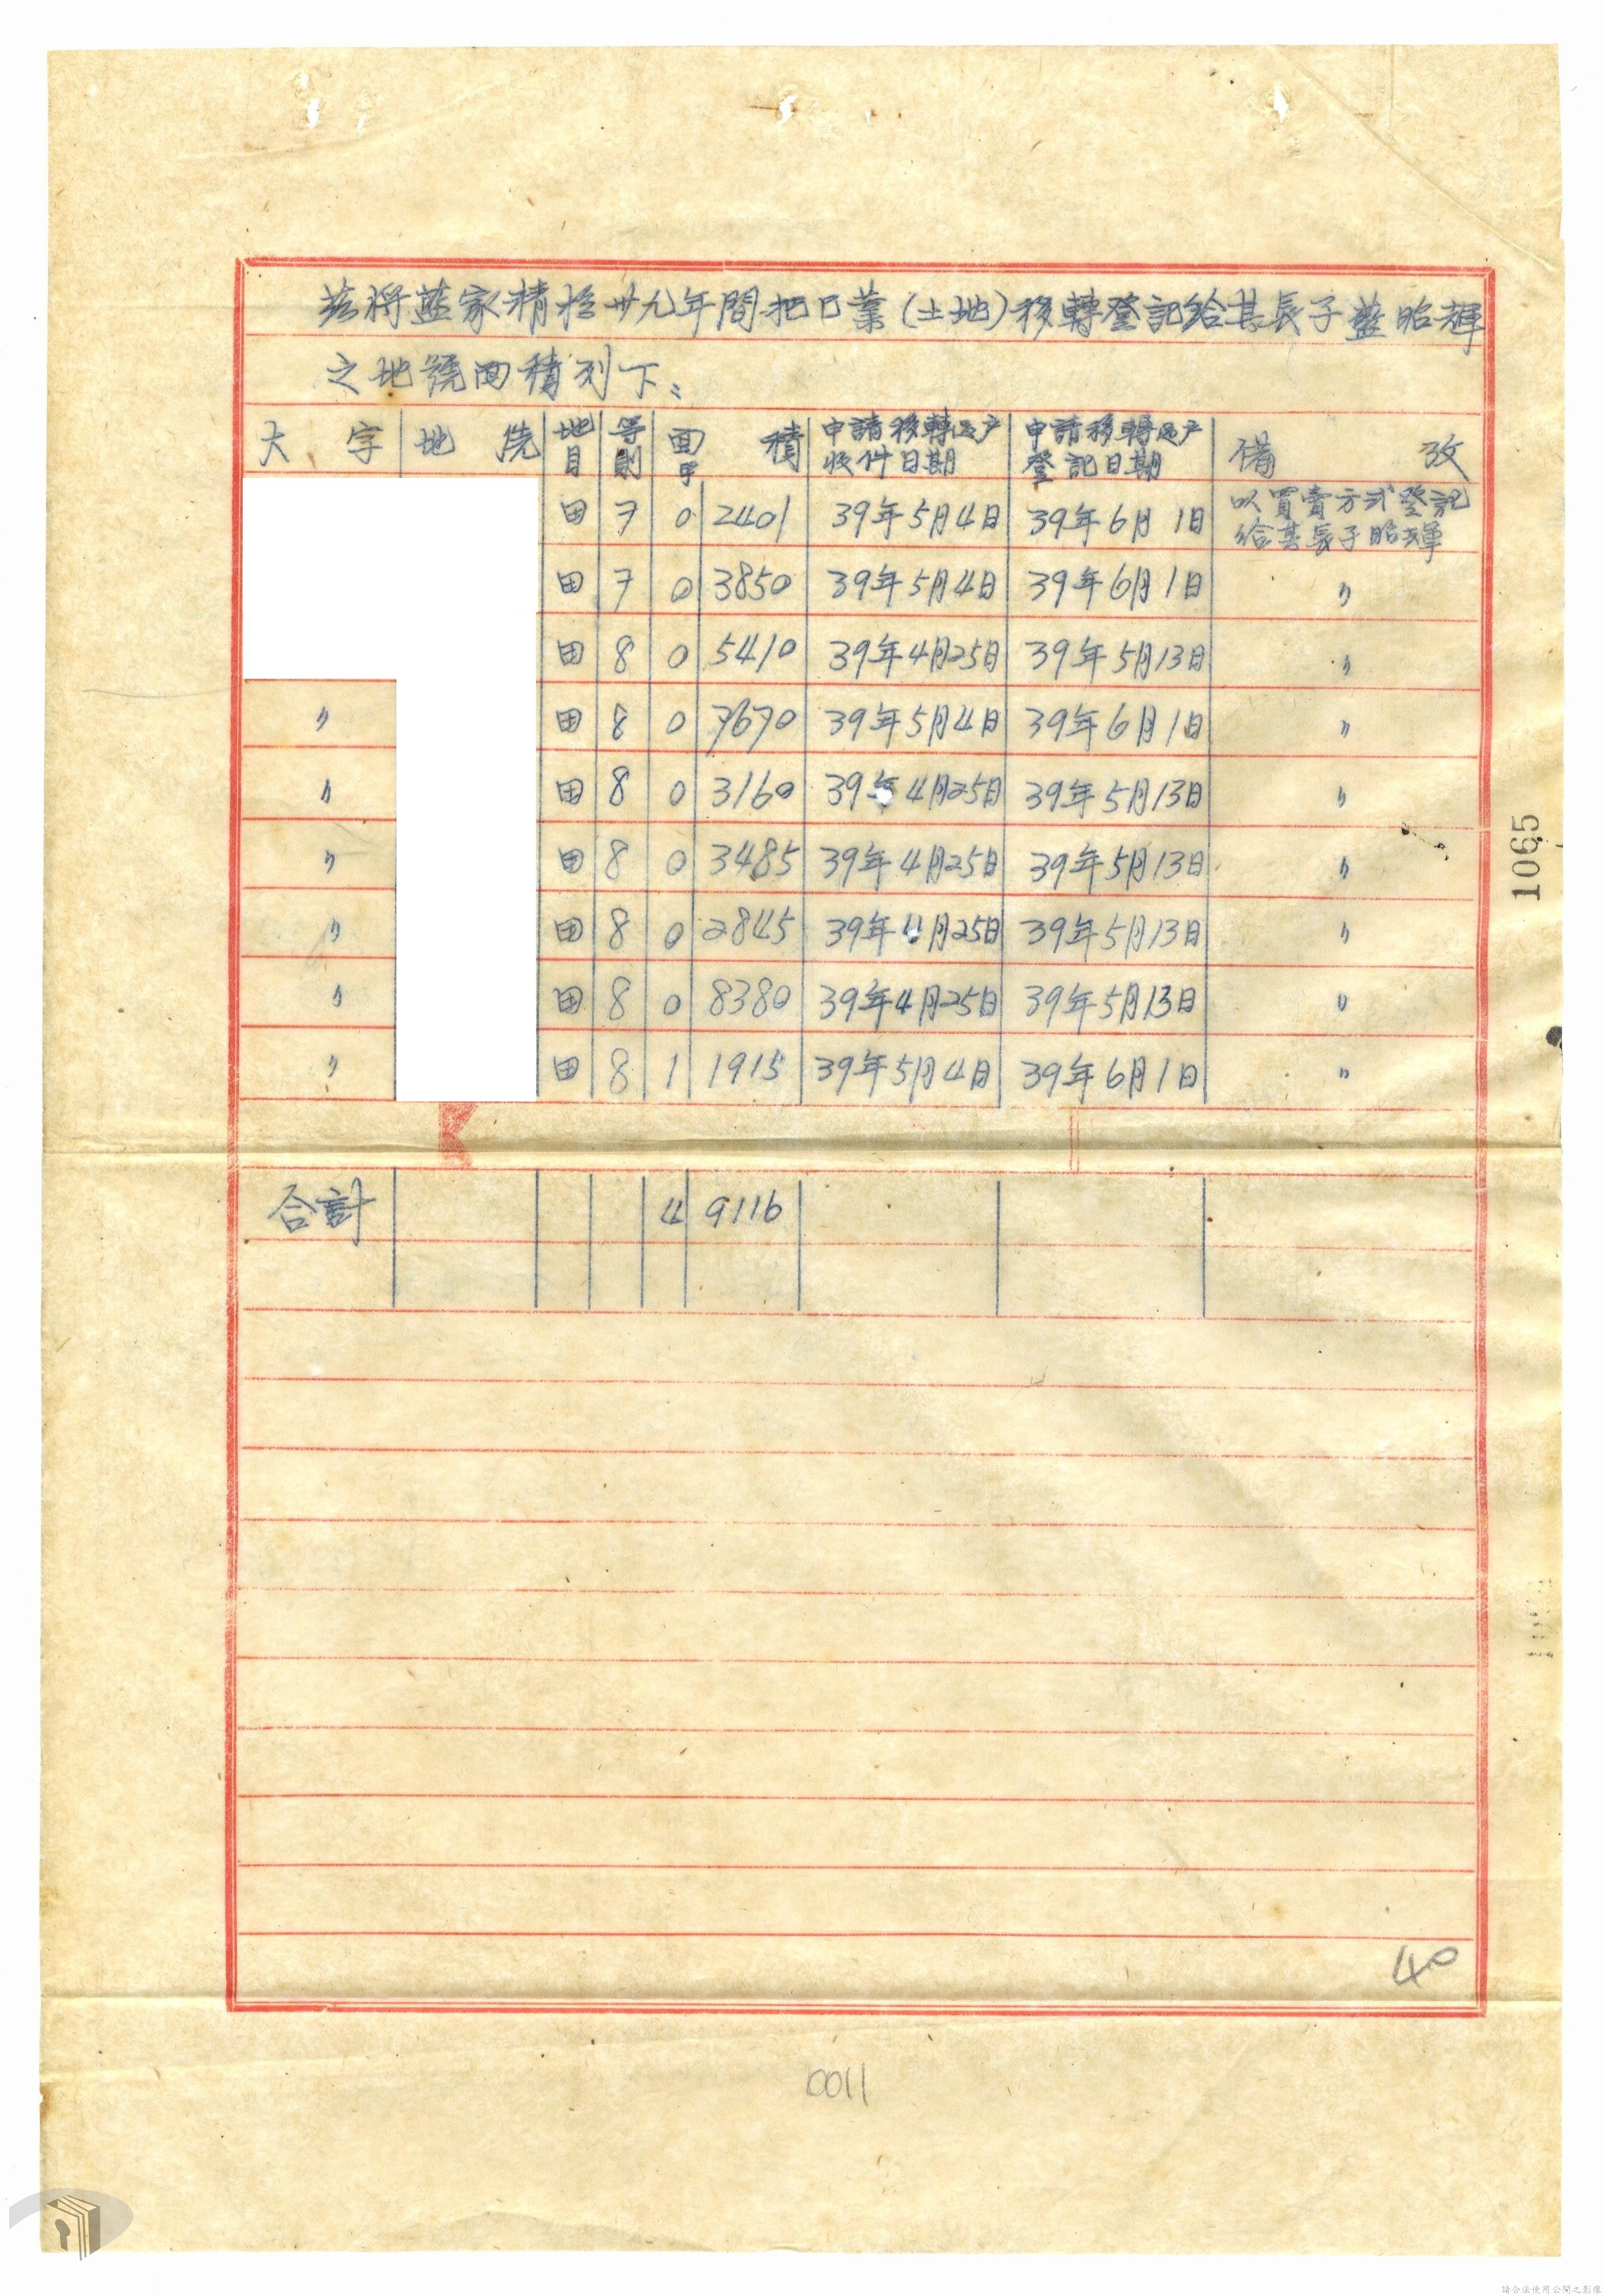 茲將藍家精於卅九年間把己業(土地)移轉登記給其長子藍昭輝
之地號面積列下:
大字 地號 地目 等則 面積 甲 申請移轉過户收件日期 申請移轉過户登記日期 備攷
田 7 0 2401 39年5月4日 39年6月1日 以買賣方式登記給其長子昭輝
田 7 0 3850 39年5月4日 39年6月1日 〃
田 8 0 5410 39年4月25日 39年5月13日 〃
〃 田 8 0 7670 39年5月4日 39年6月1日 〃
〃 田 8 0 3160 39年4月25日 39年5月13日 〃
〃 田 8 0 3485 39年4月25日 39年5月13日 〃
〃 田 8 0 2845 39年4月25日 39年5月13日 〃
〃 田 8 0 8380 39年4月25日 39年5月13日 〃
〃 田 8 1 1915 39年5月4日 39年6月1日 〃
合計 4 9116
1065
40
0011
請合法使用公開之影像